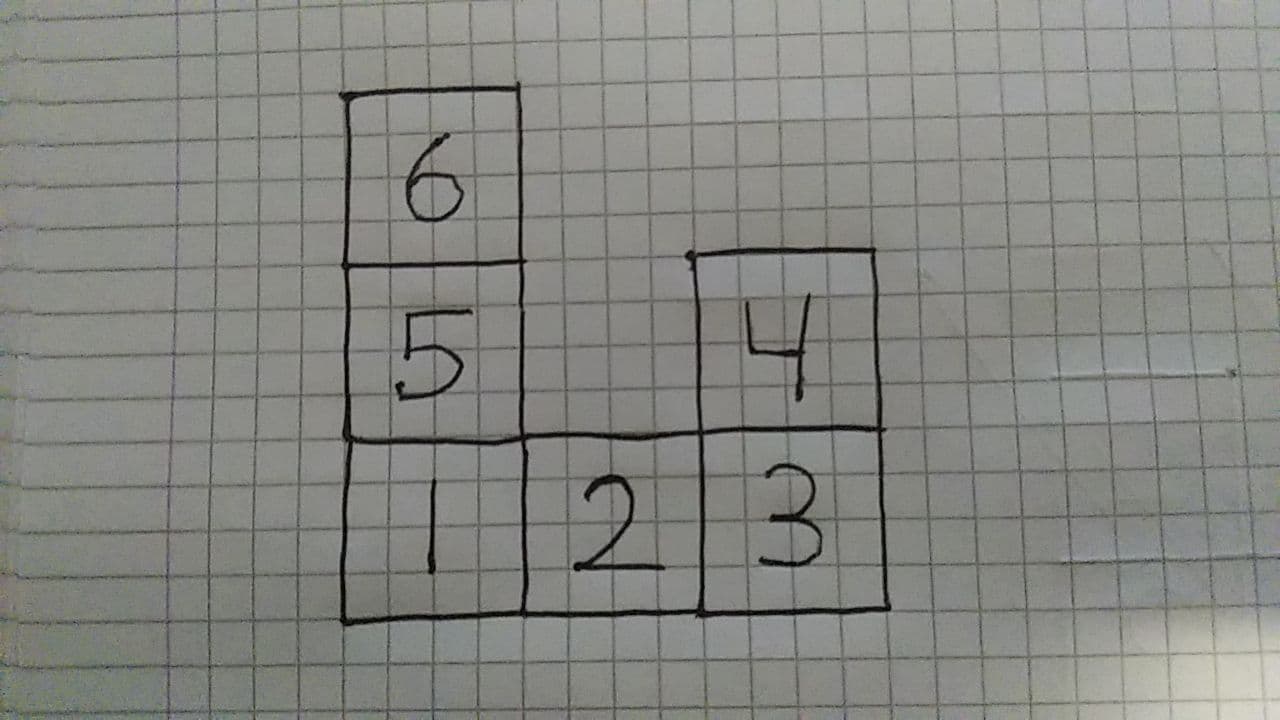 6
5 4
1 2 3